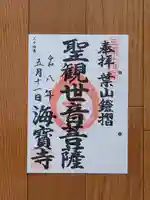 奉拝 葉山鐙摺
聖観世音菩薩
令和八年
五月十一日
海寳寺